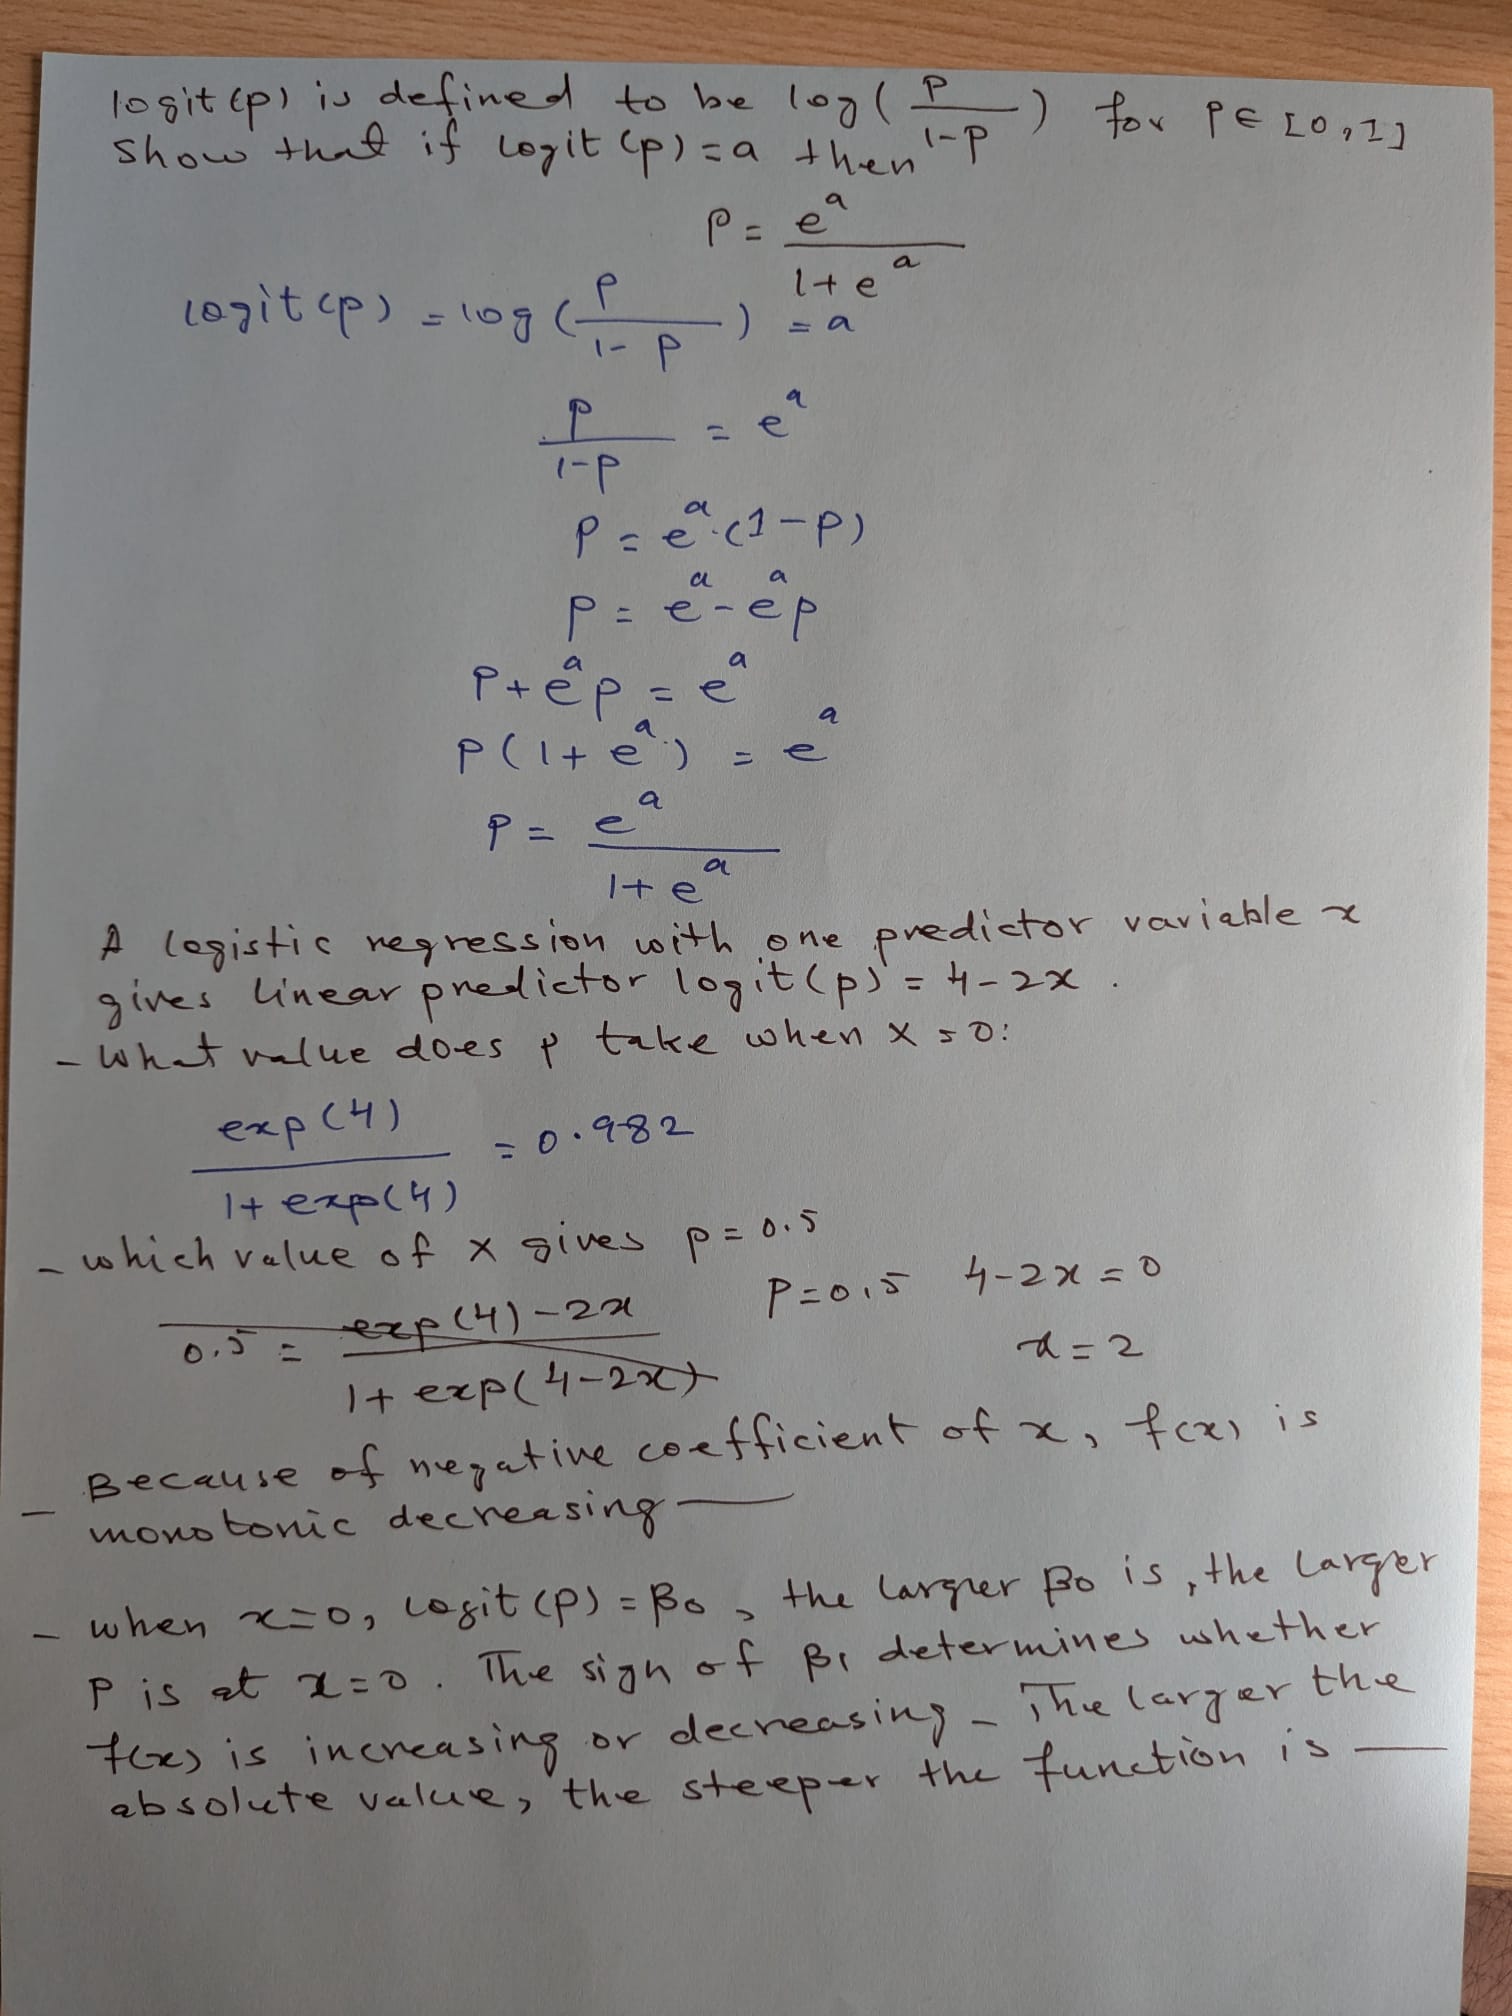 logit(p) is defined to be log(p/(1-p)) for P ∈ [0,1]
Show that if logit(p) = a then
P = e^a/(1+e^a)
logit(p) = log(p/(1-p)) = a
p/(1-p) = e^a
P = e^a.(1-P)
P = e^a - e^a p
P + e^a p = e^a
P(1+e^a) = e^a
P = e^a/(1+e^a)
A logistic regression with one predictor variable x
gives linear predictor logit(p) = 4-2x.
- What value does p take when x = 0:
exp(4)/(1+exp(4)) = 0.982
- which value of x gives p = 0.5
0.5 = exp(4)-2x/(1+exp(4-2x)) P=0,5 4-2x = 0
x = 2
- Because of negative coefficient of x, f(x) is
monotonic decreasing —
- when x=0, logit(p) = β0, the larger β0 is, the larger
P is at x=0. The sign of β1 determines whether
f(x) is increasing or decreasing - The larger the
absolute value, the steeper the function is —